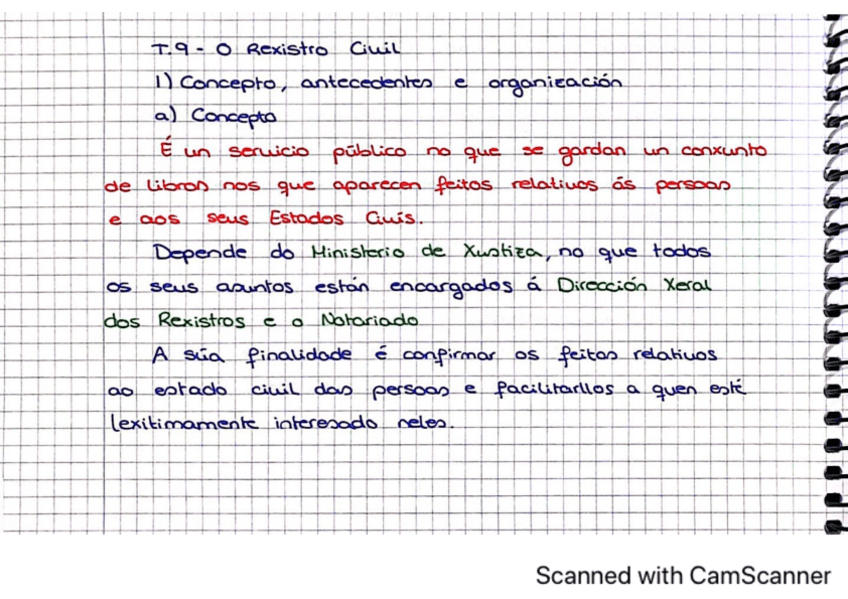 T.9 - O Rexistro Civil
1) Concepto, antecedentes e organización
a) Concepto
É un servicio público no que se gardan un conxunto
de libros nos que aparecen feitos relativos ás persoas
e aos seus Estados Civís.
Depende do Ministerio de Xustiza, no que todos
os seus asuntos están encargados á Dirección Xeral
dos Rexistros e o Notariado
A súa finalidade é confirmar os feitos relativos
ao estado civil das persoas e facilitarllos a quen esté
lexitimamente interesado neles.
Scanned with CamScanner